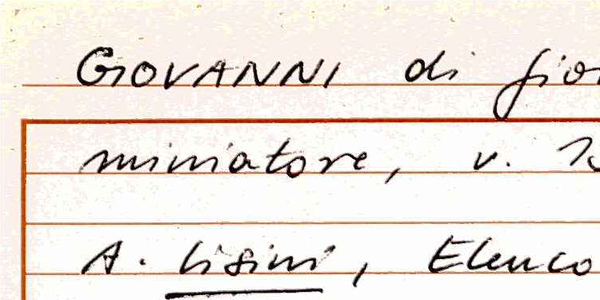 GIOVANNI di
miniatore, v.
A. Lisini, Elenco